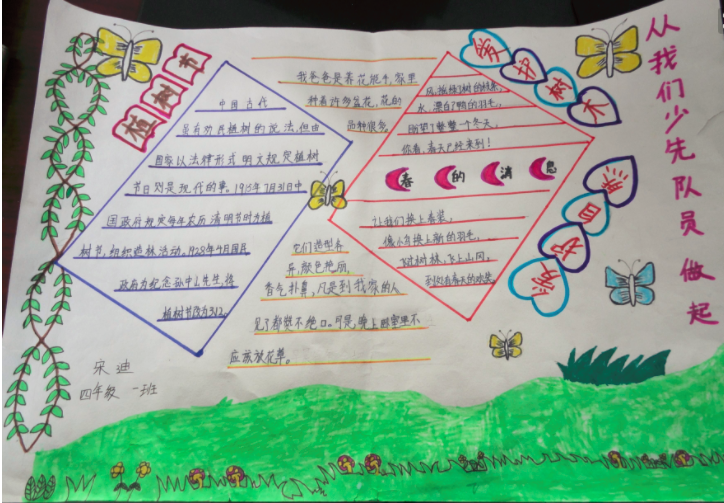 植树节
中国古代
虽有劝民植树的说法,但由
国家以法律形式明文规定植树
节日则是现代的事。1915年7月31日中
国政府规定每年农历清明节时为植
树节,组织造林活动。1928年4月国民
政府为纪念孙中山先生,将
植树节改为3.12。
我爸爸是养花能手,家里
种着许多盆花,花的
品种很多。
它们造型奇
异,颜色艳丽,
香气扑鼻,凡是到我家的人
见了都赞不绝口。可是,晚上卧室里不
应该放花草。
爱护树木
风,摇绿了树的枝条,
水,漂白了鸭的羽毛,
盼望了整整一个冬天,
你看,春天已经来到!
春的消息
让我们换上春装,
像小鸟换上新的羽毛,
飞过树林,飞上山冈,
到处有春天的欢笑。
爱护自
从我们少先队员做起
宋迪
四年级 一班